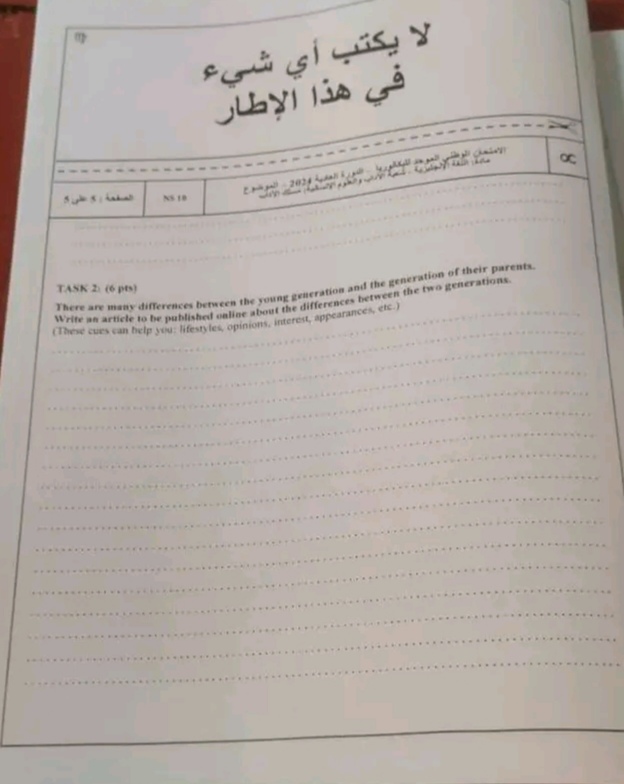 لا يكتب أي شيء
في هذا الإطار
الامتحان الوطني الموحد للبكالوريا - الدورة العادية 2024 - الموضوع
مادة: اللغة الإنجليزية - شعبة الآداب والعلوم الإنسانية: مسلك الآداب
NS 10
الصفحة : 5 على 5
TASK 2: (6 pts)
There are many differences between the young generation and the generation of their parents.
Write an article to be published online about the differences between the two generations.
(These cues can help you: lifestyles, opinions, interest, appearances, etc.)